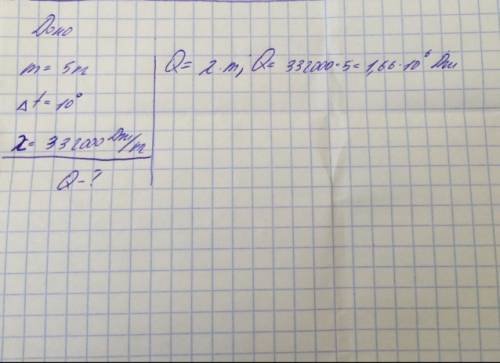 Дано
m = 5т
Δt = 10°
λ = 332000 Дж/т
Q - ?
Q = λ · m; Q = 332000 · 5 = 1,66 · 10⁶ Дж